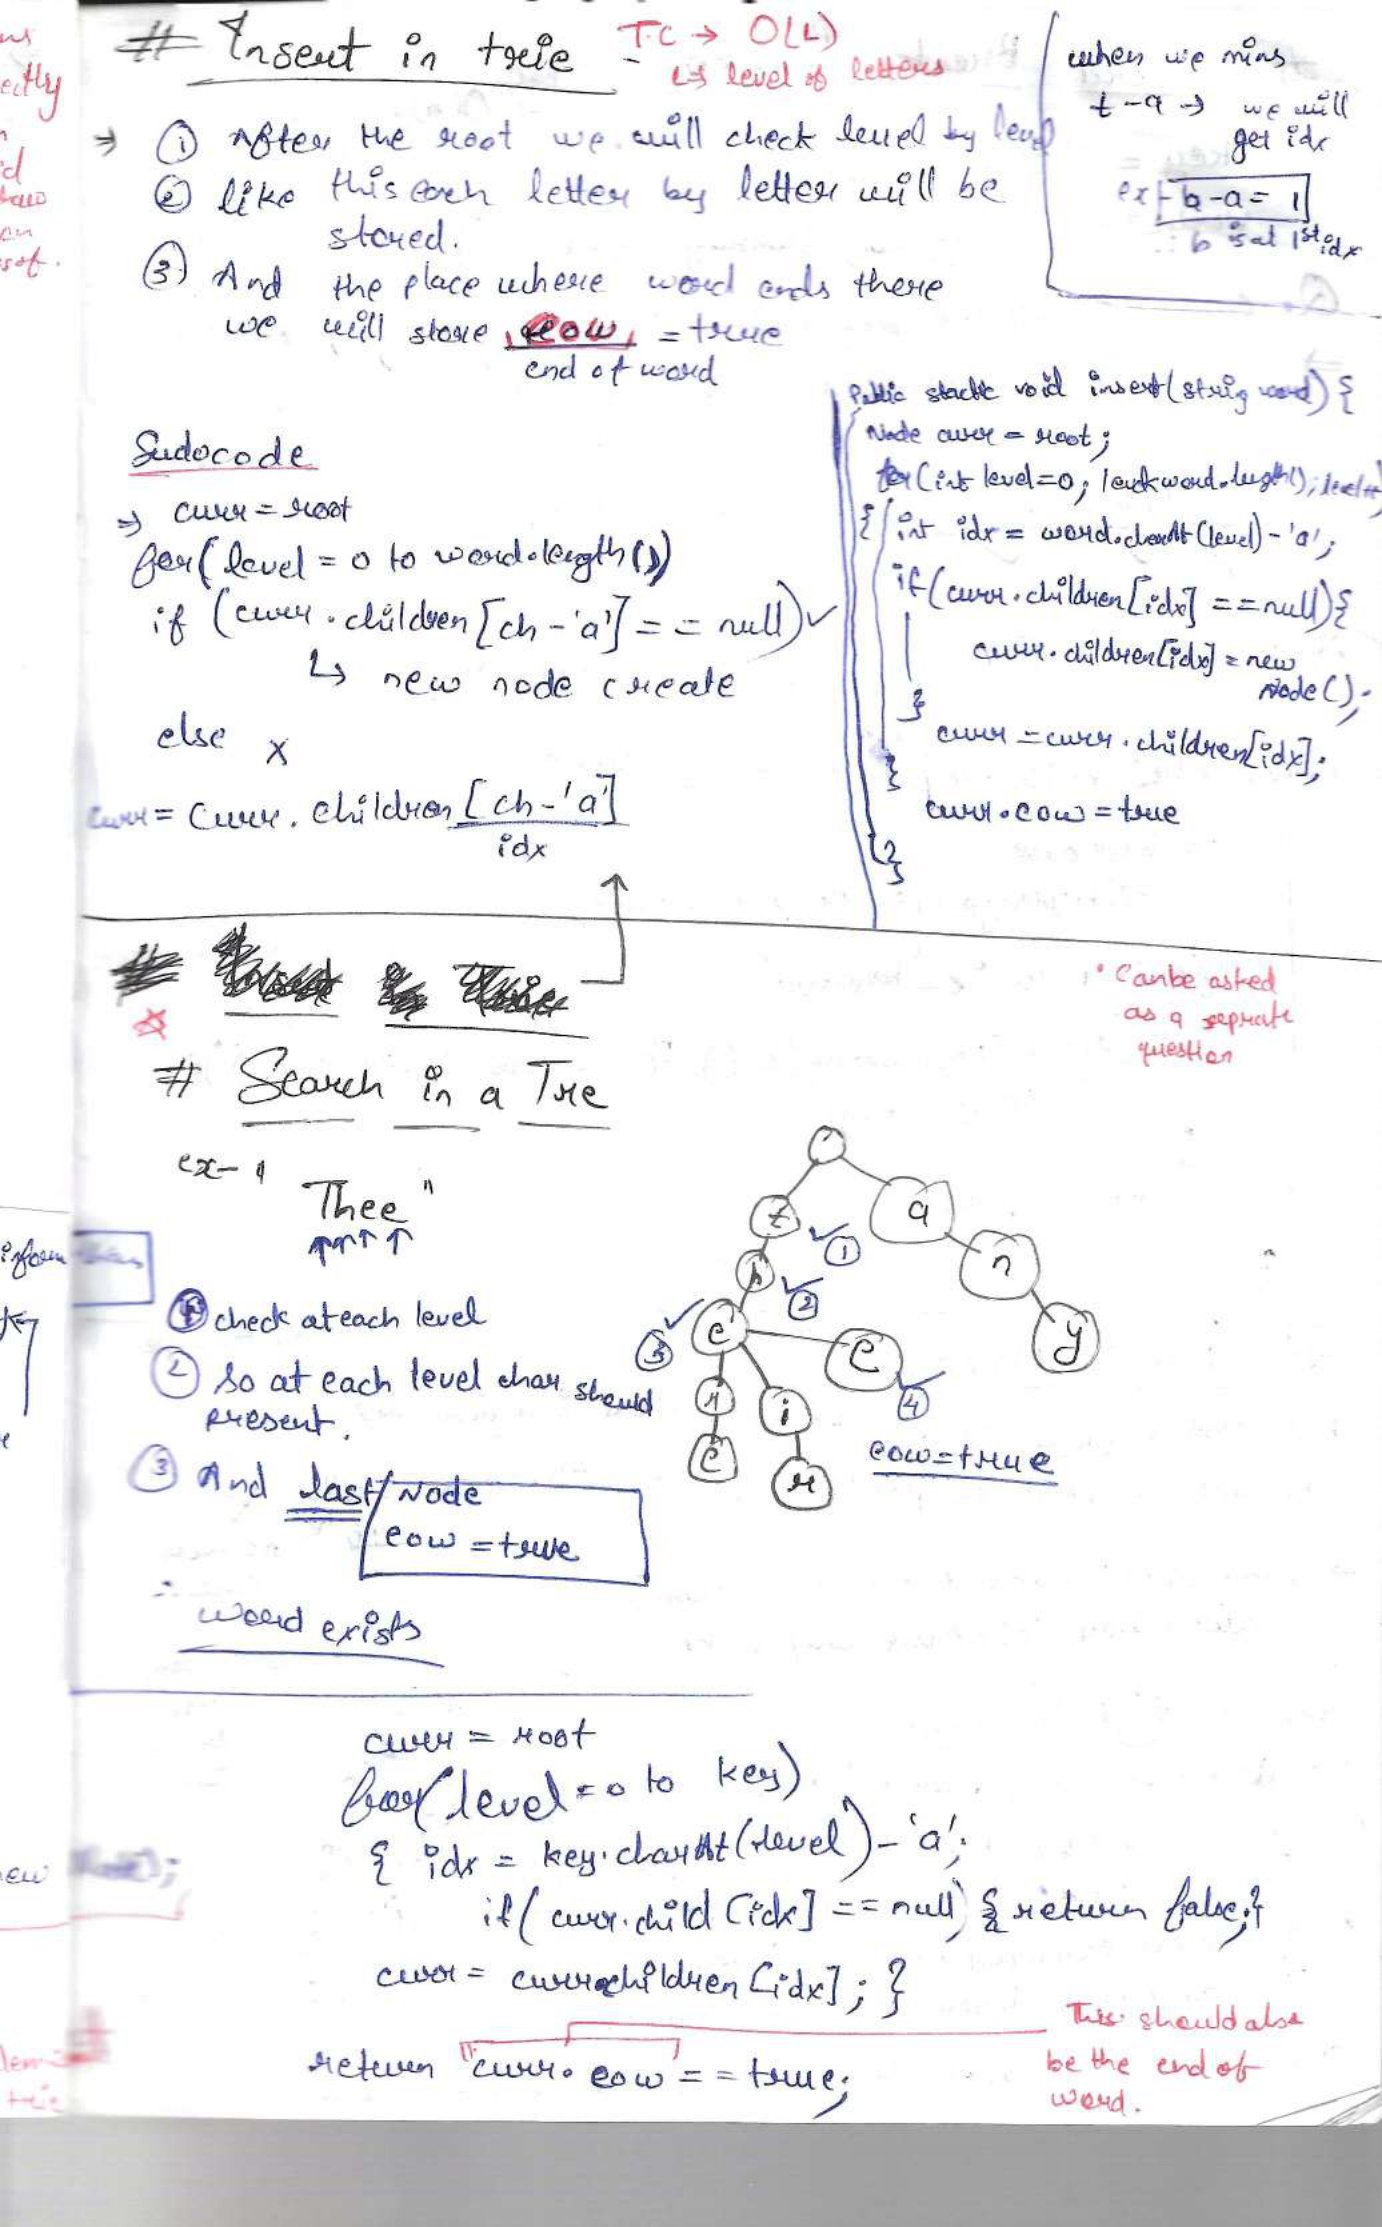 # Insert in trie - T.C → O(L)
↳ level of letters
when we mins
t - a → we will
get idx
ex - b - a = 1
∴ b is at 1st idx
⇒ ① After the root we will check level by level
② like this each letter by letter will be
stored.
③ And the place where word ends there
we will store eow = true
end of word
Sudocode
⇒ curr = root
for(level = 0 to word.length())
if (curr.children[ch-'a'] == null) ✓
↳ new node create
else x
curr = curr.children[ch-'a']
idx
Public static void insert(string word) {
Node curr = root;
for(int level=0; level<word.length(); level++)
{ int idx = word.charAt(level)-'a';
if(curr.children[idx] == null){
curr.children[idx] = new
Node();
}
curr = curr.children[idx];
}
curr.eow = true
}
• Can be asked
as a seprate
question
# Search in a Tre
ex- "Thee"
↑↑↑↑
① check at each level
② so at each level char should
present.
③ And last Node
eow = true
∴ word exists
t ✓ ①
a
h ✓ ②
n
✓ ③ e
e ✓ ④
y
r
i
e
r
eow = true
curr = root
for(level = 0 to key)
{ idx = key.charAt(level) - 'a';
if( curr.child[idx] == null) { return false;}
curr = curr.children[idx]; }
return curr.eow == true;
This should also
be the end of
word.
inform
new